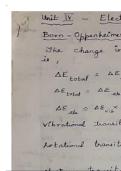 Unit IV - Elect
Born - Oppenheime
The change in
is,
ΔE total = ΔE
ΔE total = ΔE
vibrational transit
Rotational transit